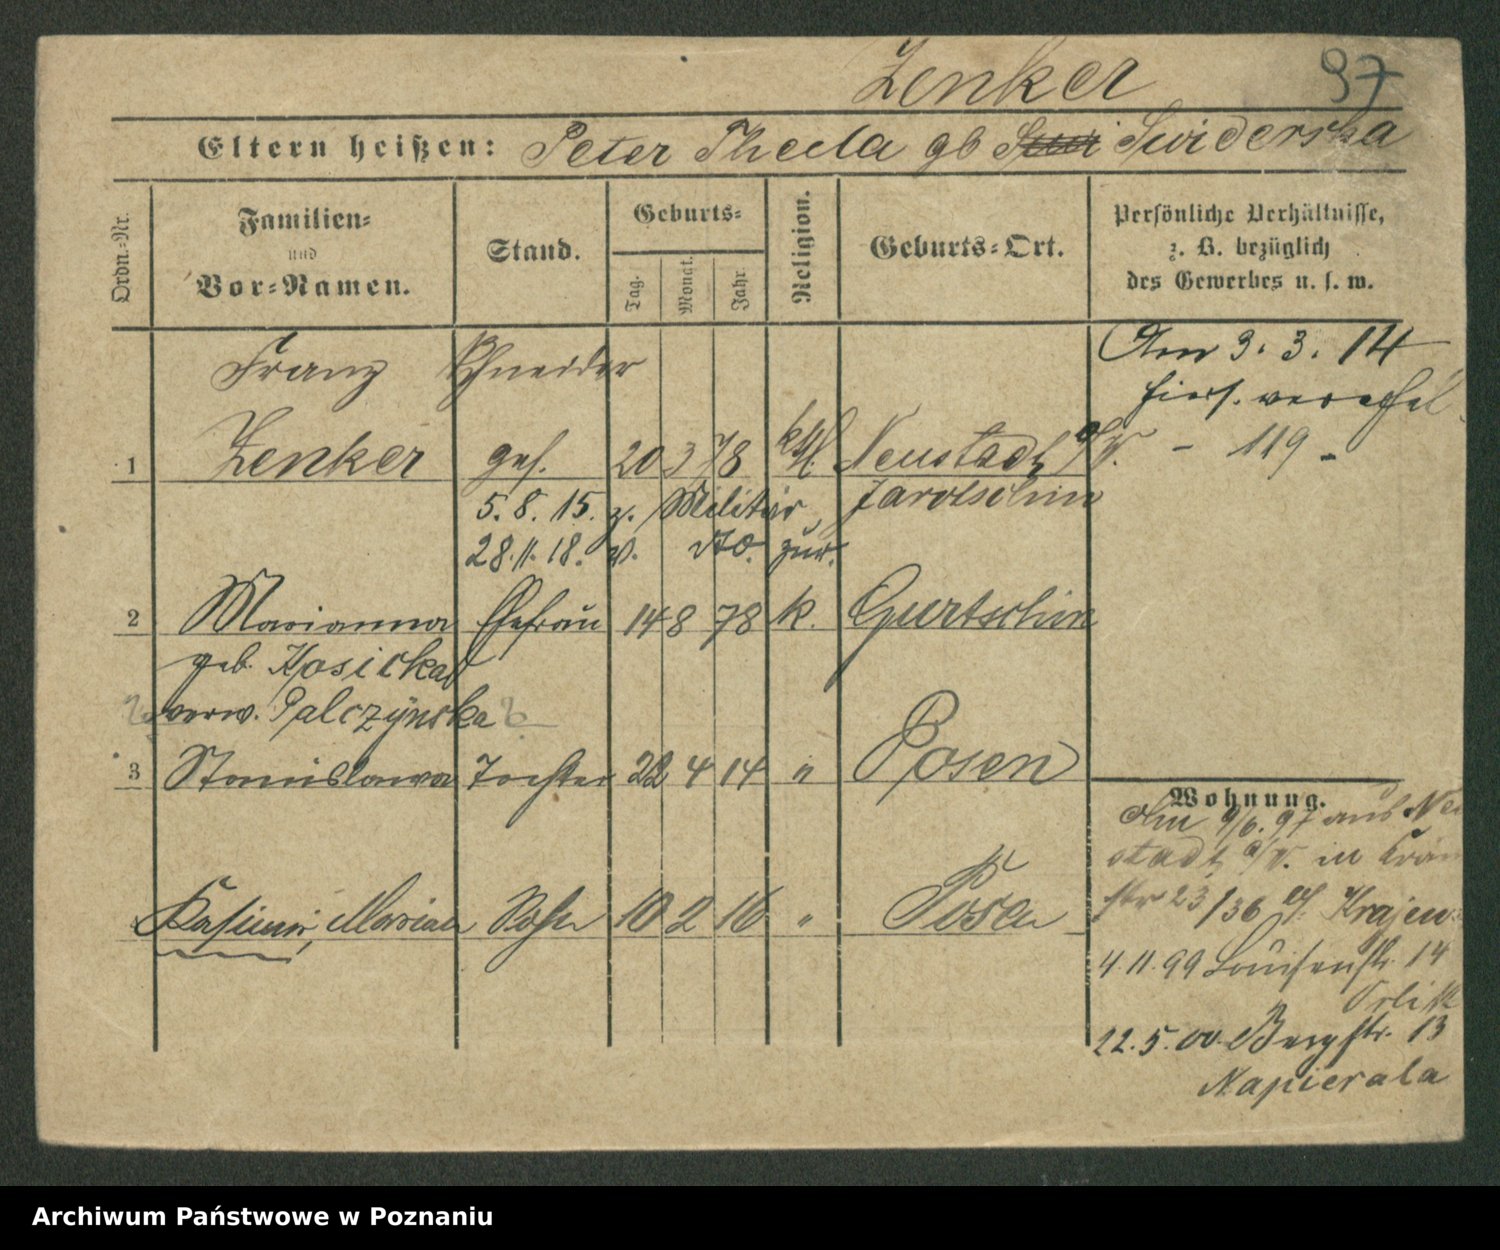 Zenker 97
Eltern heißen: Peter Thecla gb Swiderska
Ordn.-Nr.
Familien-
und
Vor-Namen.
Stand.
Geburts-
Tag.
Monat.
Jahr.
Religion.
Geburts-Ort.
Persönliche Verhältnisse,
z. B. bezüglich
des Gewerbes u. s. w.
Franz Schneider
Am 3. 3. 14
hiers. verehel
1 Zenker ges. 20 3 78 kth. Neustadt a/W. - 119 -
5. 8. 15. z. Militär Jarotschin
28. 11. 18. v. dto. zur.
2 Marianna Ehefrau 14 8 78 k. Gurtschin
geb. Kosicka
verw. Palczynska
3 Stanislawa Tochter 22 4 14 " Posen
Wohnung.
Am 9/6. 97 aus Neu
stadt a/W. in
str 23/36 Krajew
Kasimir, Marian Sohn 10 2 16 " Posen
4. 11. 99 Louisenstr. 14
Orlik
22. 5. 00. Bergstr. 13
Napierala
Archiwum Państwowe w Poznaniu